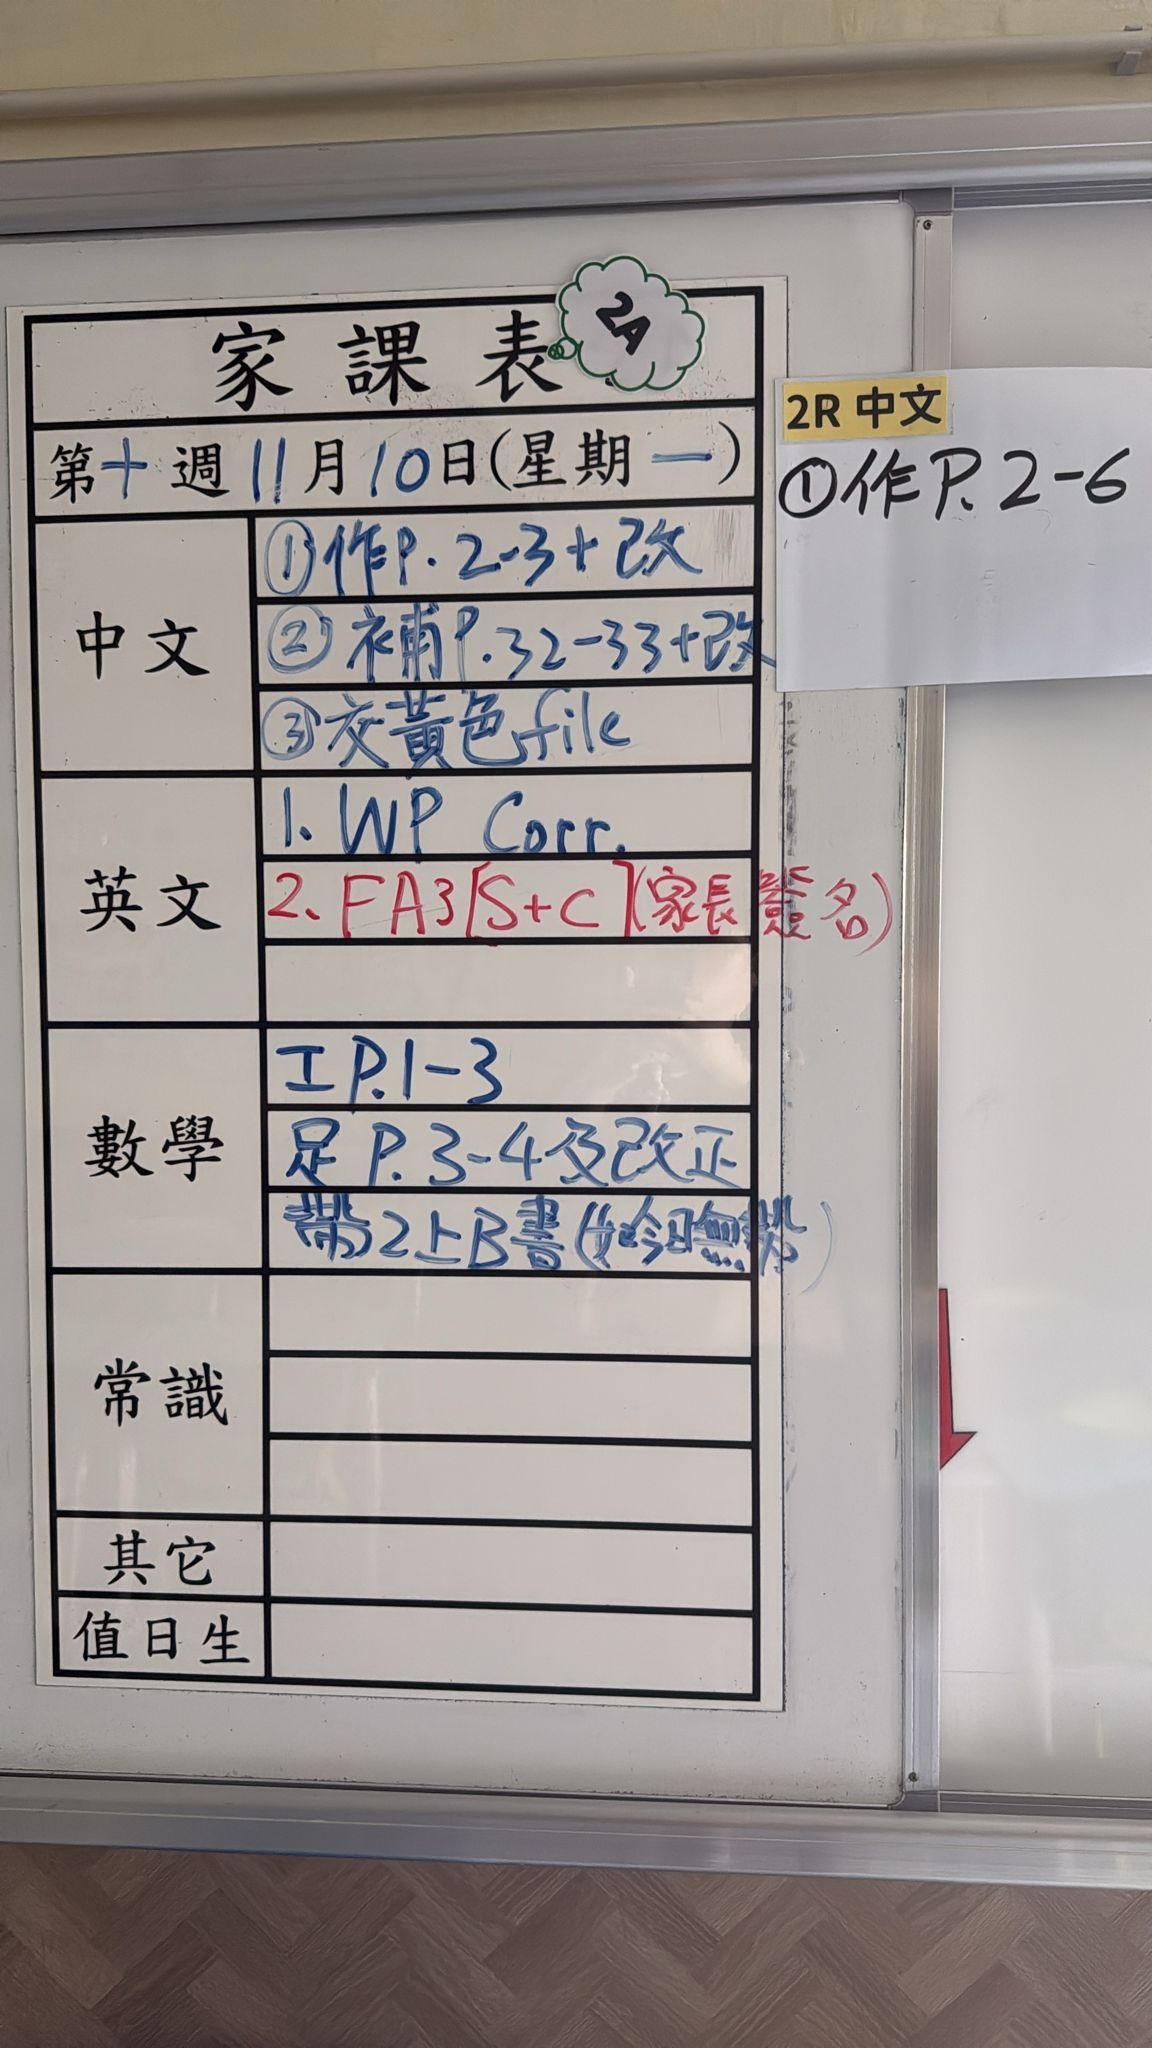 家課表
2A
第十週11月10日(星期一)
中文
①作P.2-3+改
②補P.32-33+改
③交黃色file
英文
1. WP Corr.
2. FA3[S+C](家長簽名)
數學
工P.1-3
足P.3-4及改正
帶2上B書(如今日無帶)
常識
其它
值日生
2R 中文
①作P.2-6